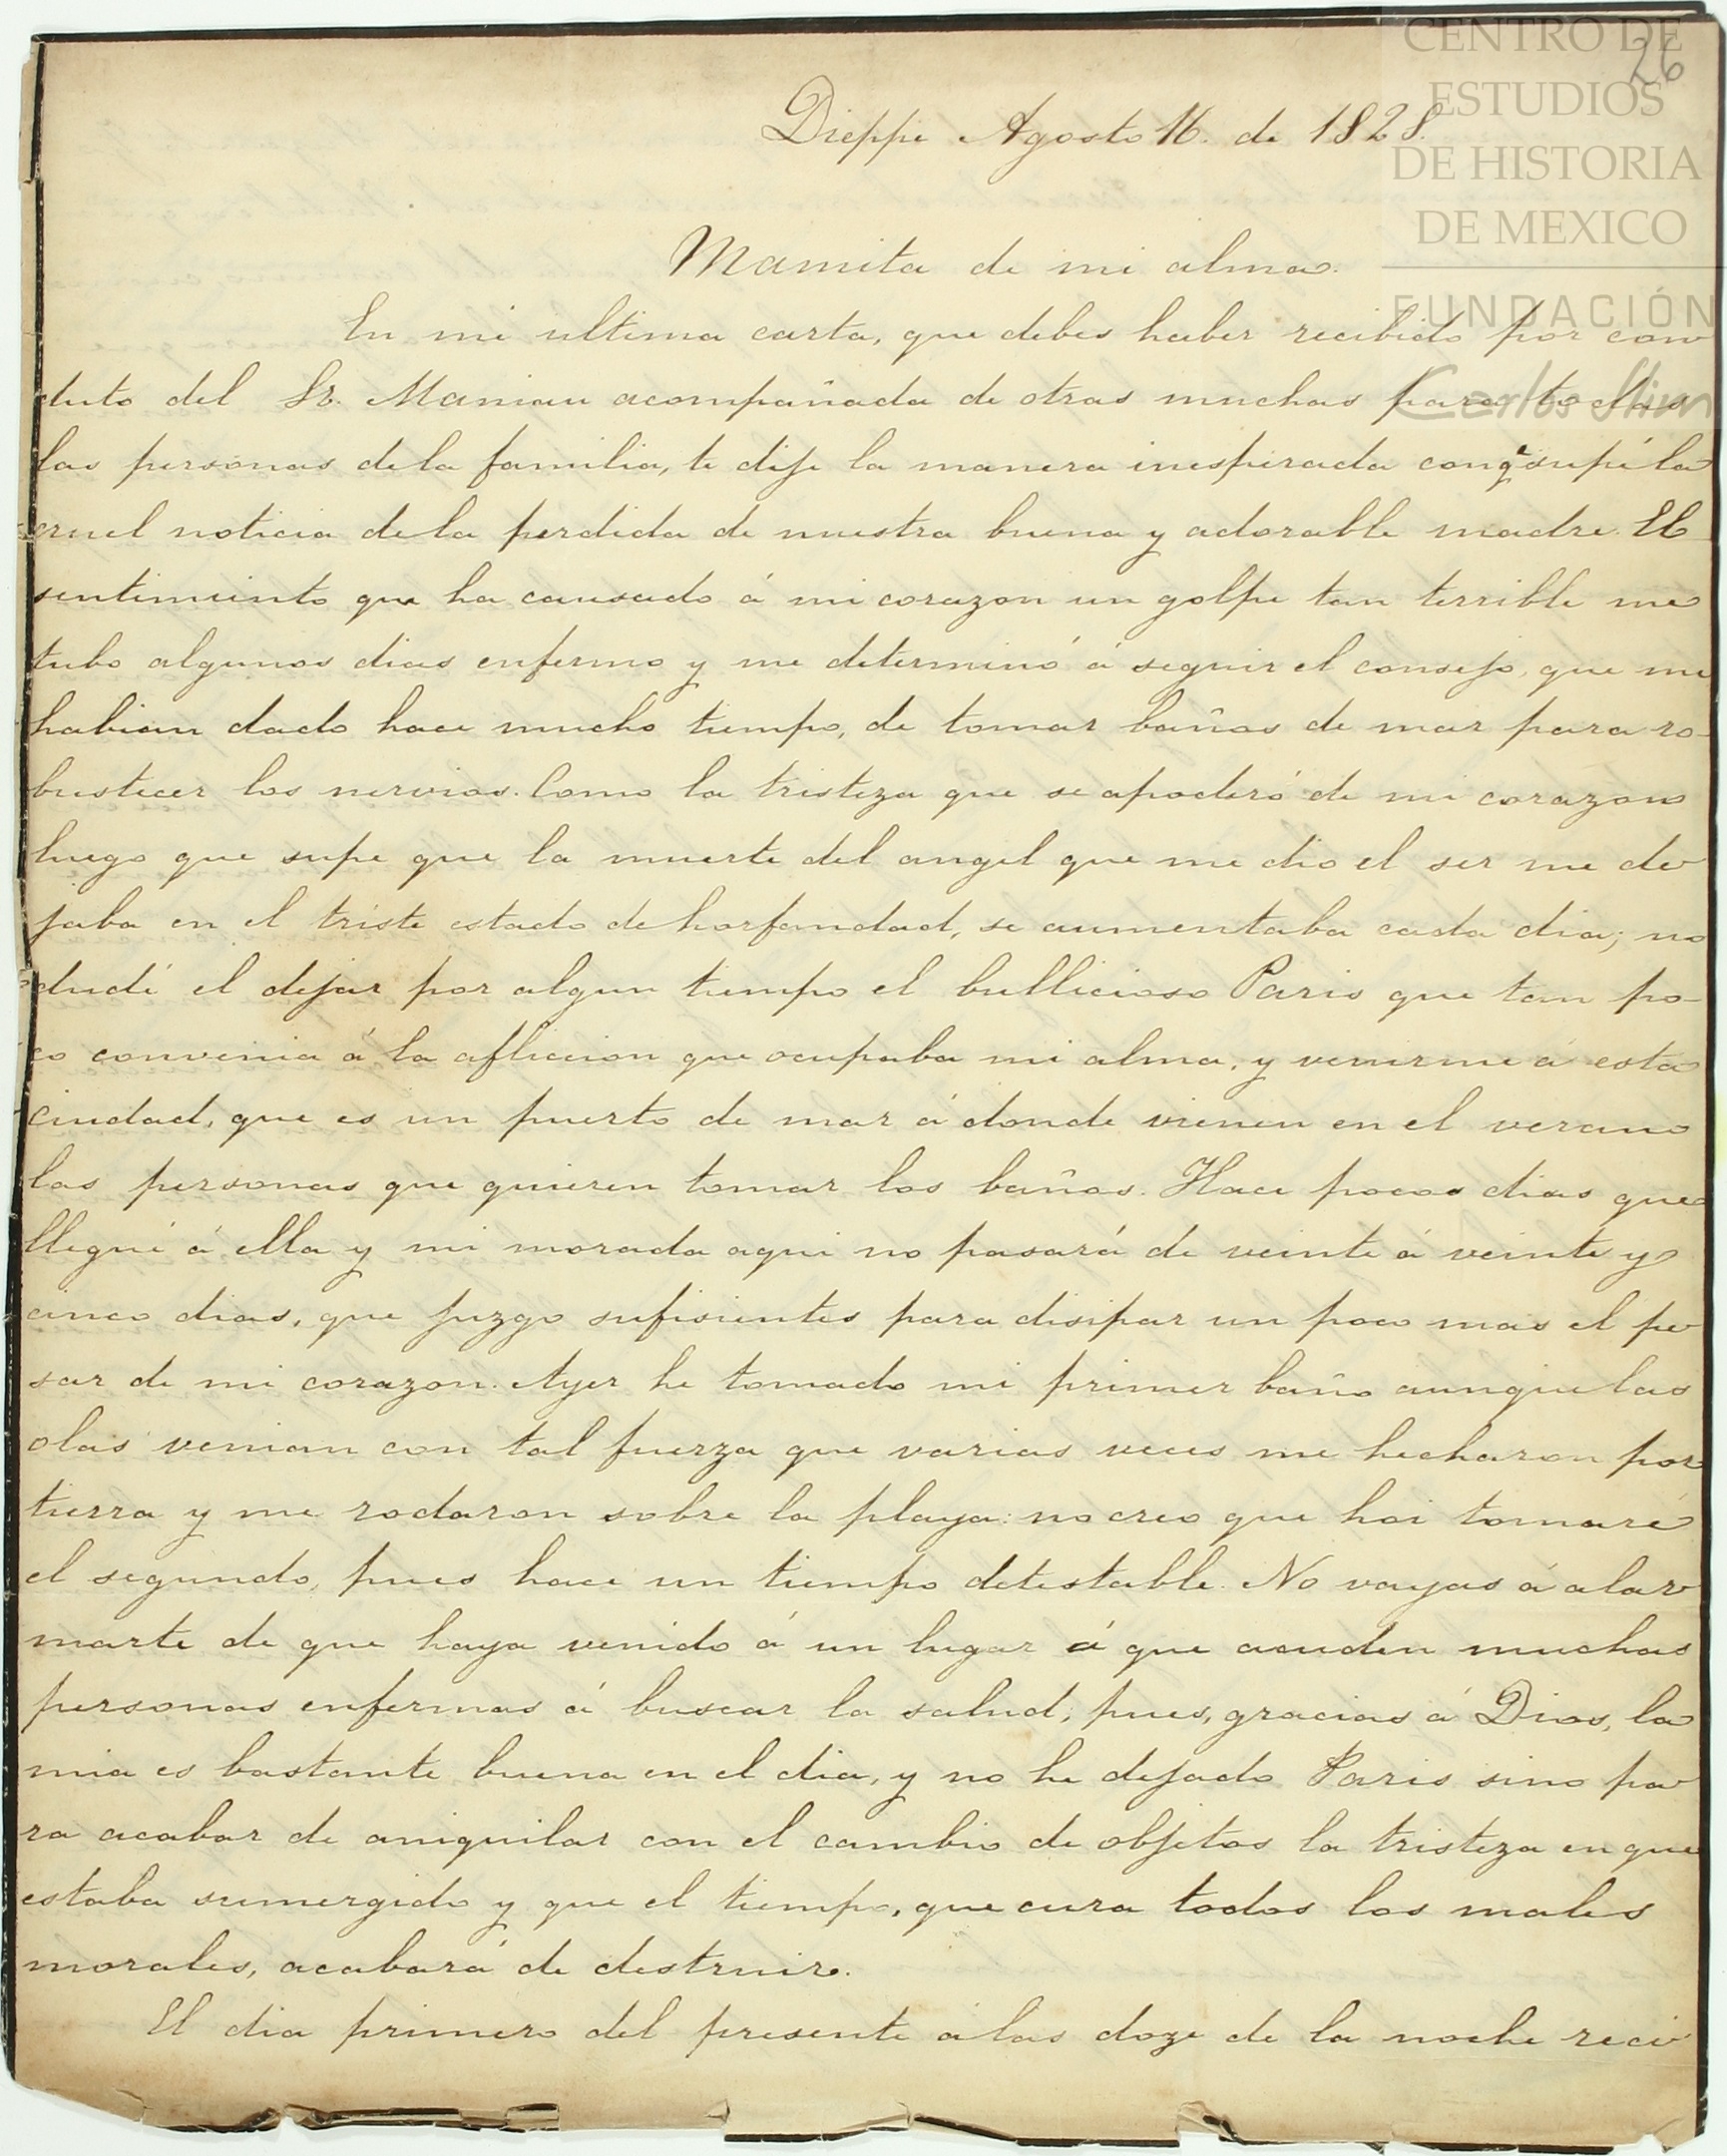 CENTRO DE
ESTUDIOS
DE HISTORIA
DE MEXICO
FUNDACIÓN
Carlos Slim
26
Dieppe Agosto 16. de 1828.
Mamita de mi alma.
En mi ultima carta, que debes haber recibido por con
duto del Sr. Maniau acompañada de otras muchas para todas
las personas dela familia, te dije la manera inesperada conqe supe la
cruel noticia dela perdida de nuestra buena y adorable madre. El
sentimiento que ha causado á mi corazon un golpe tan terrible me
tubo algunos dias enfermo y me determinó á seguir el consejo, que me
habian dado hace mucho tiempo, de tomar baños de mar para ro-
bustecer los nervios. Como la tristeza que se apoderó de mi corazon
luego que supe que la muerte del angel que me dio el ser me de
jaba en el triste estado de horfandad, se aumentaba cada dia; no
dudé el dejar por algun tiempo el bullicioso Paris que tan po-
co convenia á la afliccion que ocupaba mi alma, y venirme á esta
ciudad, que es un puerto de mar á donde vienen en el verano
las personas que quieren tomar los baños. Hace pocos dias que
llegué á ella y mi morada aqui no pasará de veinte á veinte y
cinco dias, que juzgo sufisientes para disipar un poco mas el pe
sar de mi corazon. Ayer he tomado mi primer baño aunque las
olas venian con tal fuerza que varias veces me hecharon por
tierra y me rodaron sobre la playa: no creo que hoi tomaré
el segundo, pues hace un tiempo detestable. No vayas á alar
marte de que haya venido á un lugar á que acuden muchas
personas enfermas á buscar la salud, pues, gracias á Dios, la
mia es bastante buena en el dia, y no he dejado Paris sino pa
ra acabar de aniquilar con el cambio de objetos la tristeza en que
estaba sumergido y que el tiempo, que cura todos los males
morales, acabará de destruir.
El dia primero del presente á las doze de la noche reci